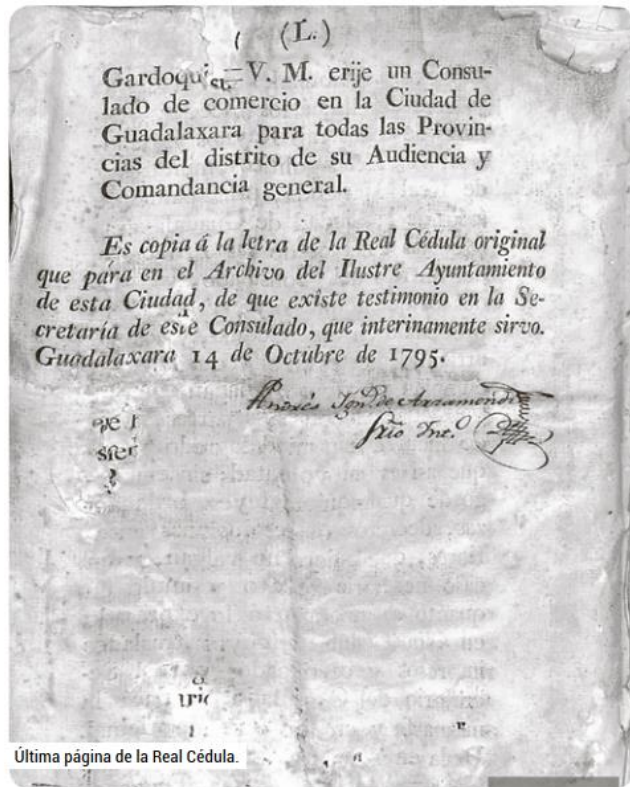 (L.)
Gardoqui = V. M. erije un Consu-
lado de comercio en la Ciudad de
Guadalaxara para todas las Provin-
cias del distrito de su Audiencia y
Comandancia general.
Es copia á la letra de la Real Cédula original
que pára en el Archivo del Ilustre Ayuntamiento
de esta Ciudad, de que existe testimonio en la Se-
cretaría de este Consulado, que interinamente sirvo.
Guadalaxara 14 de Octubre de 1795.
Andrés Ign.º de Arramendi
Srio Int.º
Última página de la Real Cédula.